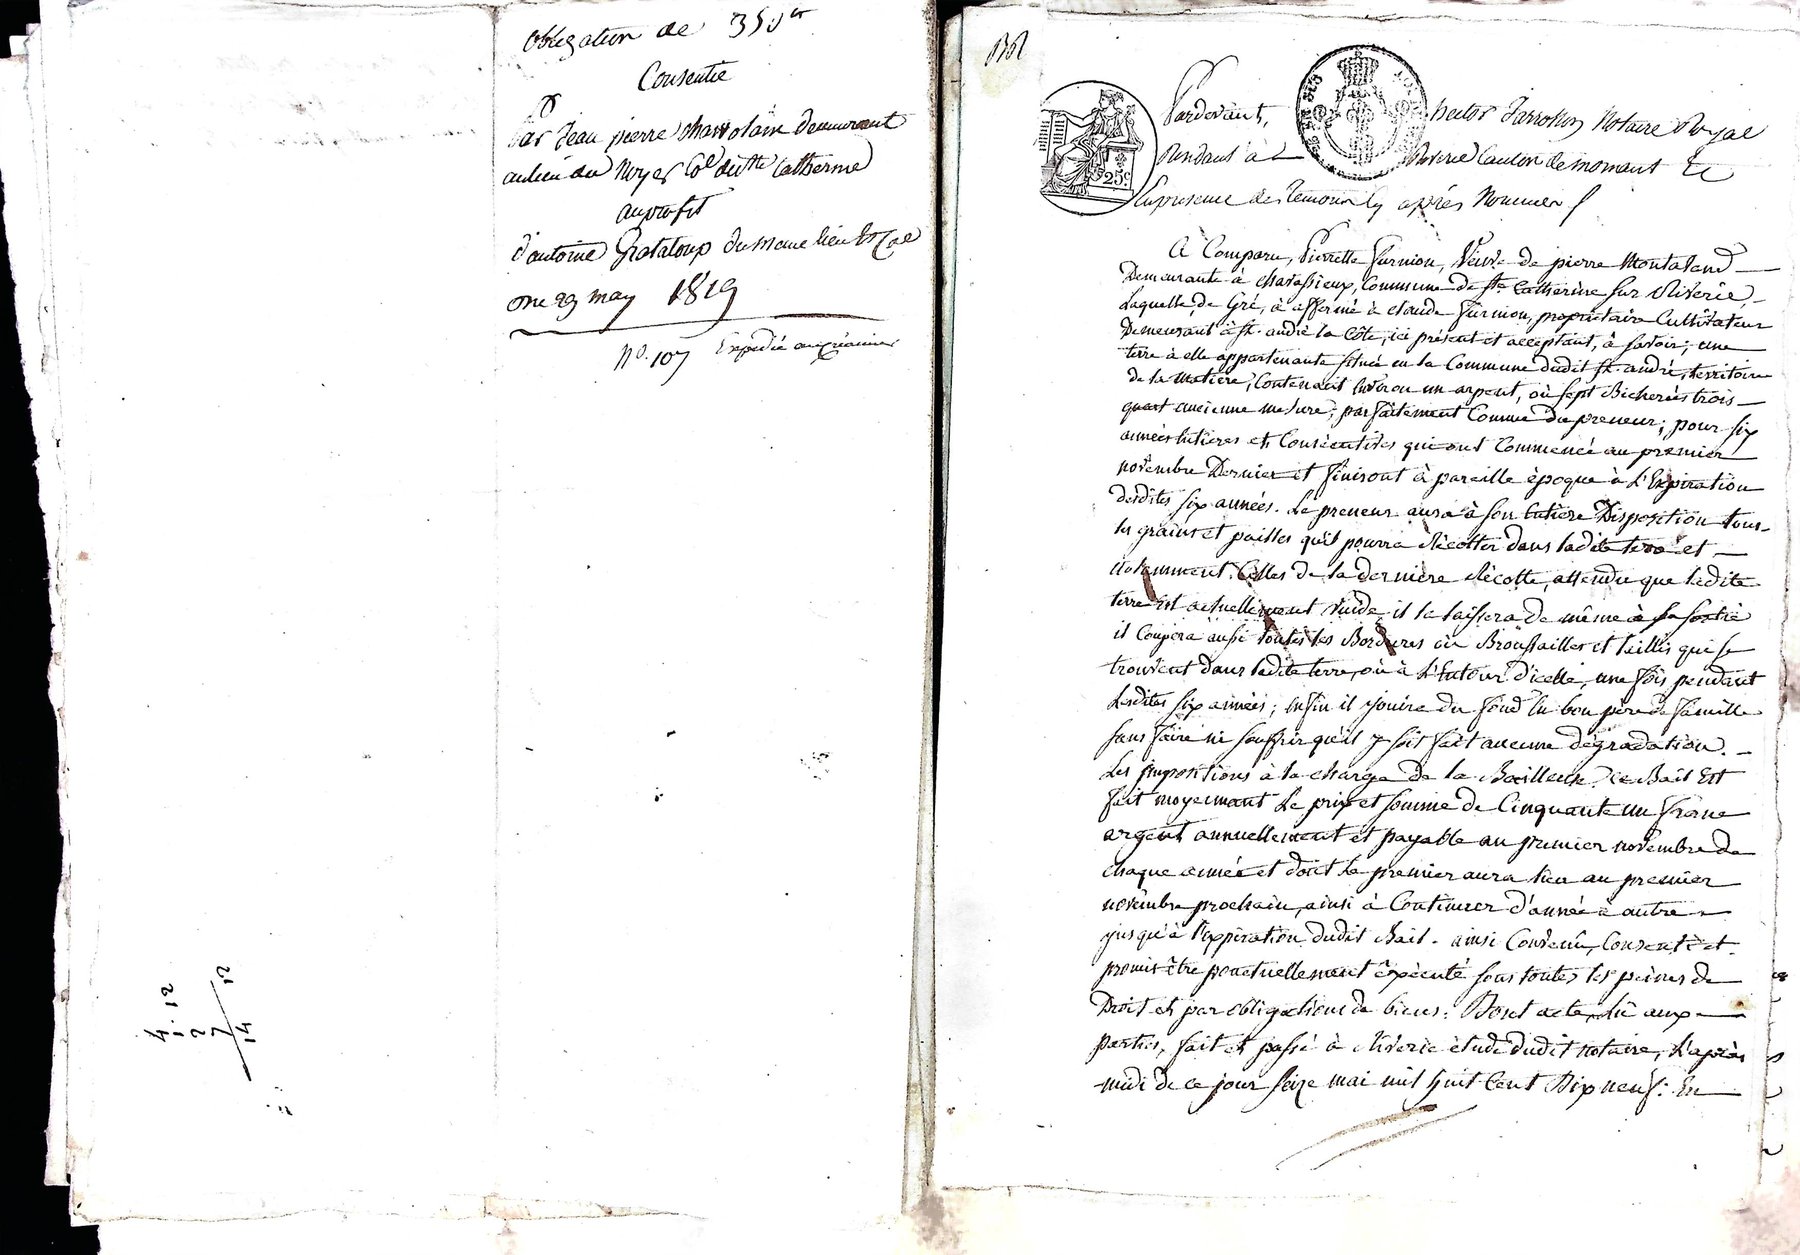 obligation de 350 fr
Consentie
Par Jean pierre demeurant
au lieu du Noyer Cne de Ste Catherine
au profit
d'antoine Grataloup du meme lieu
29 may 1819
No. 107 Expédié au créancier
4. 12
1 2 7 12
14
Pardevant, hector Notaire Royal
Résidant à Riverie Canton de mornant &
En presence des temoins cy après Nommés
A Comparu, Pierrette furnion, Veuve de pierre Montaland
Demeurante à Chatassieux, Commune de Ste Catherine sur Riverie
Laquelle, de Gré, à affermé à claude furnion, propriétaire Cultivateur
Demeurant à St. andré la Côte, ici présent et acceptant, à savoir; une
terre à elle appartenante située en la Commune dudit St. andré, territoire
de la Matière, Contenant Environ un arpent, où sept Bicherées trois
quart ancienne mesure; parfaitement Connue du preneur; pour six
années Entières et Consécutives qui ont Commencé au premier
novembre Dernier et finiront à pareille èpoque à L'Expiration
desdites six années. Le preneur aura à son Entière Disposition tous
les grains et pailles qu'il pourra Récolter dans ladite terre et
notamment Celles de la dernière Récolte, attendu que ladite
terre Est actuellement vuide, il la laissera de même à sa sortie
il Coupera aussi toutes les Bordures où Broussailles et taillis qui se
trouvent dans ladite terre, où à L'Entour d'icelle, une fois pendant
Lesdites six années; Enfin il jouira du fond En bon père de famille
sans faire ni souffrir qu'il y soit fait aucune dégradation.
Les impositions à la charge de la Bailleuse. Ce Bail Est
fait moyennant Le prix et somme de Cinquante un franc
argent annuellement et payable au premier novembre de
chaque année et dont Le premier aura lieu au premier
novembre prochain, ainsi à Continuer d'année à autre
jusqu'à l'expiration dudit Bail. ainsi Convenu, Consenti et
promis être ponctuellement èxécuté sous toutes les peines de
Droit et par obligations de biens. Dont acte, Lû aux
parties, fait et passé à Riverie ètude dudit notaire, L'après
midi de ce jour seize mai mil huit Cent Dix neuf: En